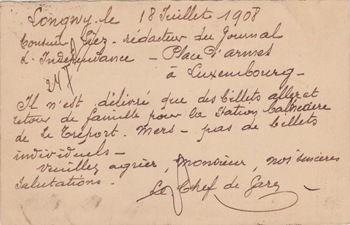 Longwy, le 18 Juillet 1908
Monsieur rédacteur du Journal
L'Indépendance - Place d'armes
à Luxembourg -
Il n'est délivré que des billets aller et
retour de famille pour la station balnéaire
de le Treport. Mers - pas de billets
individuels -
Veuillez agréer, Monsieur, nos sincères
salutations.
Le Chef de Gare